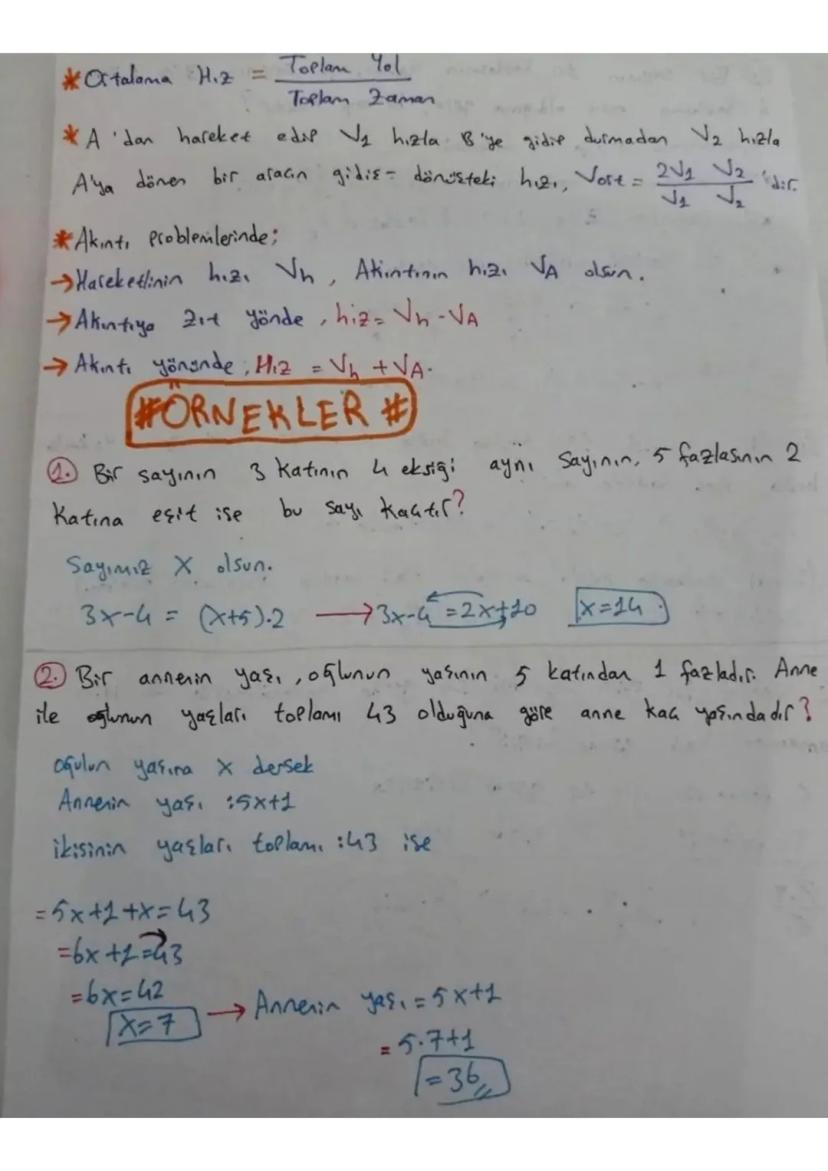 *Ortalama Hız = Toplam Yol / Toplam Zaman
*A'dan hareket edip V1 hızla B'ye gidip durmadan V2 hızla
A'ya dönen bir aracın gidiş-dönüşteki hızı, Vort = 2V1 V2 / V1 V2 'dir.
*Akıntı problemlerinde;
→Hareketlinin hızı Vh, Akıntının hızı VA olsun.
→Akıntıya zıt yönde, hız= Vh - VA
→Akıntı yönünde, Hız = Vh + VA.
#ÖRNEKLER#
1. Bir sayının 3 katının 4 eksiği aynı sayının, 5 fazlasının 2
katına eşit ise bu sayı kaçtır?
Sayımız X olsun.
3x-4 = (x+5).2 → 3x-4 = 2x+10 x=14
2. Bir annenin yaşı, oğlunun yaşının 5 katından 1 fazladır. Anne
ile oğlunun yaşları toplamı 43 olduğuna göre anne kaç yaşındadır?
oğulun yaşına x dersek
Annenin yaşı :5x+1
ikisinin yaşları toplamı :43 ise
=5x+1+x=43
=6x+1=43
=6x=42
x=7 → Annenin yaşı =5x+1
=5.7+1
=36